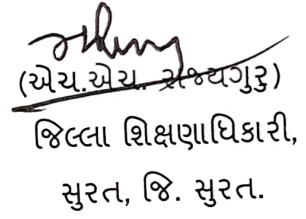 (એચ.એચ. રાજ્યગુરુ)
જિલ્લા શિક્ષણાધિકારી,
સુરત, જિ. સુરત.